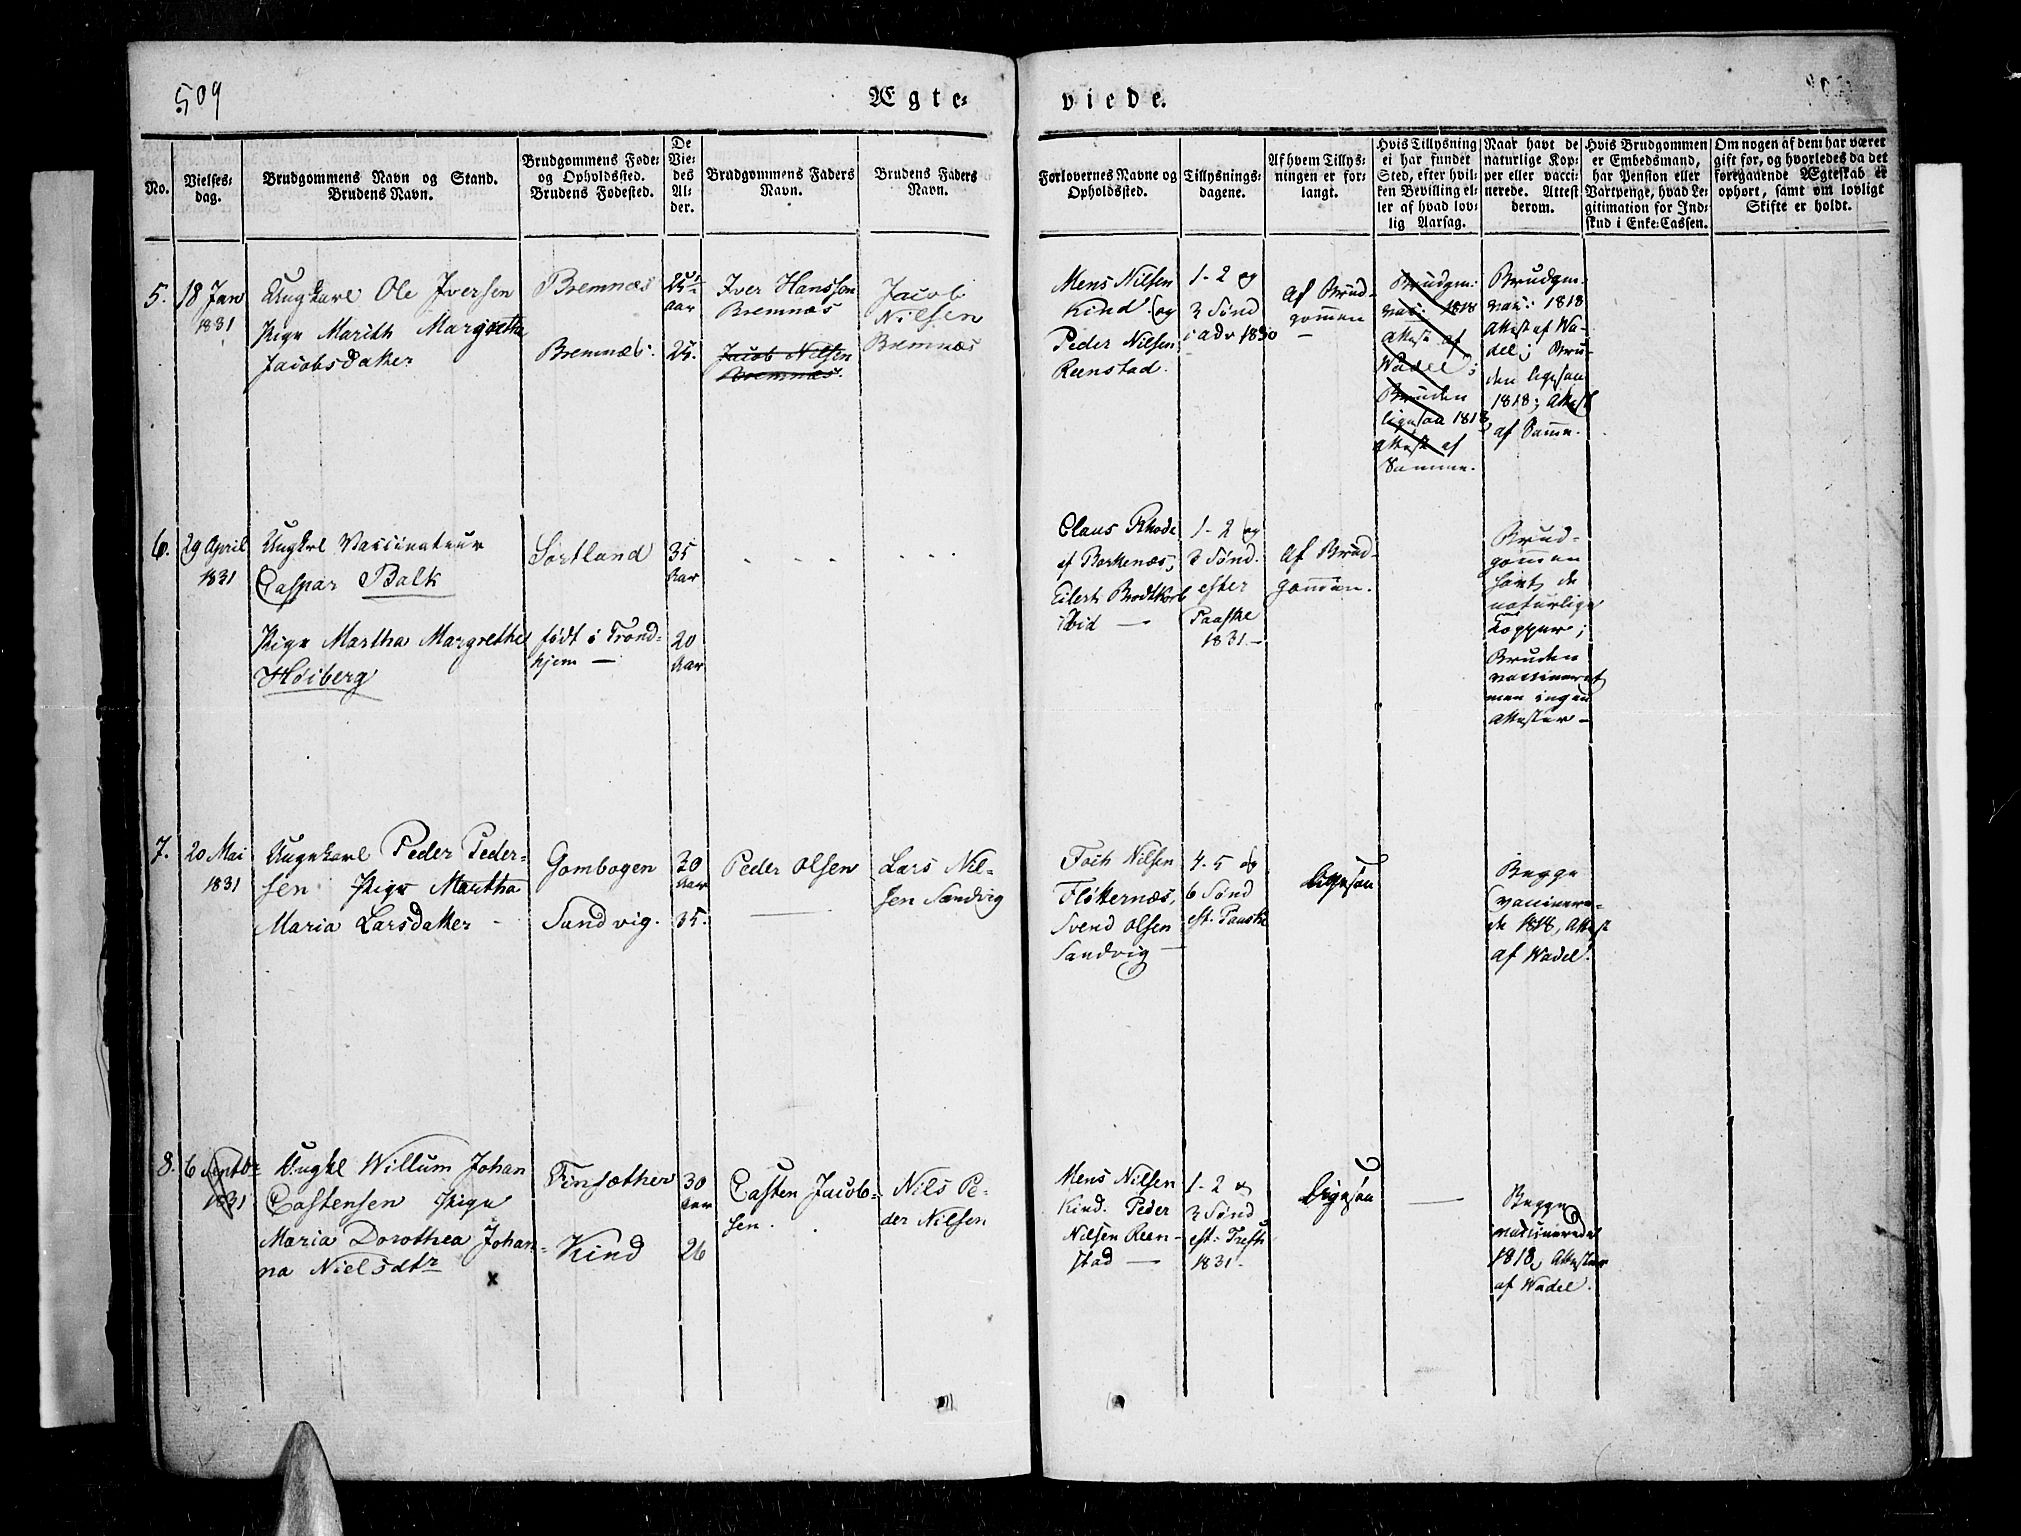 509
Ægte-
viede.
No.
Vielses-
dag.
Brudgommens Navn og Stand.
Brudens Navn.
Brudgommens Føde-
og Opholdssted.
Brudens Fødested.
De
Vie-
des
Al-
der.
Brudgommens Faders
Navn.
Brudens Faders
Navn.
Forlovernes Navne og
Opholdsted.
Tillysnings-
dagene.
Af hvem Tillys-
ningen er for-
langt.
Hvis Tillysning
ei har fundet
Sted, efter hvil-
ken Bevilling el-
ler af hvad lov-
lig Aarsag.
Naar havt de
naturlige Kop-
per eller vacci-
nerede. Attest
derom.
Hvis Brudgommen
er Embedsmand,
har Pension eller
Vartpenge, hvad Le-
gitimation for Ind-
skud i Enke-Cassen.
Om nogen af dem har været
gift før, og hvorledes da det
foregaaende Ægteskab er
ophørt, samt om lovligt
Skifte er holdt.
5.
18 Jan
1831
Ungkarl Ole Iversen
Pige Marith Margretha
Jacobsdatter
Bremnæs
Bremnæs.
25
aar
25.
Iver Hansson
Bremnæs
Jacob Nilsen
Bremnæs.
Jacob
Nilsen
Bremnæs
Mens Nilsen
Kind og
Peder Nilsen
Reenstad.
1- 2 og
3 Sønd
i adv 1830
Af Brud-
gommen
Brudgm:
vac: 1818
Attest af
Wadel;
Bruden
ligesaa 1818
Attest af
Samme.
Brudgm.
vac: 1818
Attest af Wa-
del; Bru-
den ligesaa
1818; Attest
af Samme.
6.
29 April
1831
Ungkrl Vaccinateur
Caspar Balk
Pige Martha Margrethe
Høiberg
Sortland
født i Trond-
hjem —
35
Aar
20
Aar
- - -
- - -
Claus Rhode
af Borkenæs,
Eilert Brodtkorb
ibid —
1- 2 og
3 Sønd.
efter
Paaske
1831 -
Af Brud-
gommen.
Brud-
gommen
havt de
naturlige
Kopper;
Bruden
vaccineret
men ingen
Attester -
7.
20 Mai
1831
Ungekarl Peder Peder-
sen Pige Martha
Maria Larsdatter -
Gombogen
Sandvig.
30
Aar
35.
Peder Olsen
—
Lars Nil-
sen Sandvig
Nilsen
Fløtternæs,
Svend Olsen
Sandvig —
4- 5 og
6 Sønd
eft. Paaske
Ligesaa
Begge
vaccinere-
de 1818, Attest
af Wadel.
8.
6 Septbr
1831
Ungkl Willum Johan
Castensen Pige
Maria Dorothea Johan-
na Nielsdtr
x
Finsæther
Kind
30
Aar
26
Casten Jacob-
sen.
Nils Pe-
der Nilsen
Mens Nilsen
Kind. Peder
Nilsen Reen-
stad —
1- 2 og
3 Sønd
eft.
1831 -
Ligesaa
—
Begge
vaccinerede
1818, Attester
af Wadel.